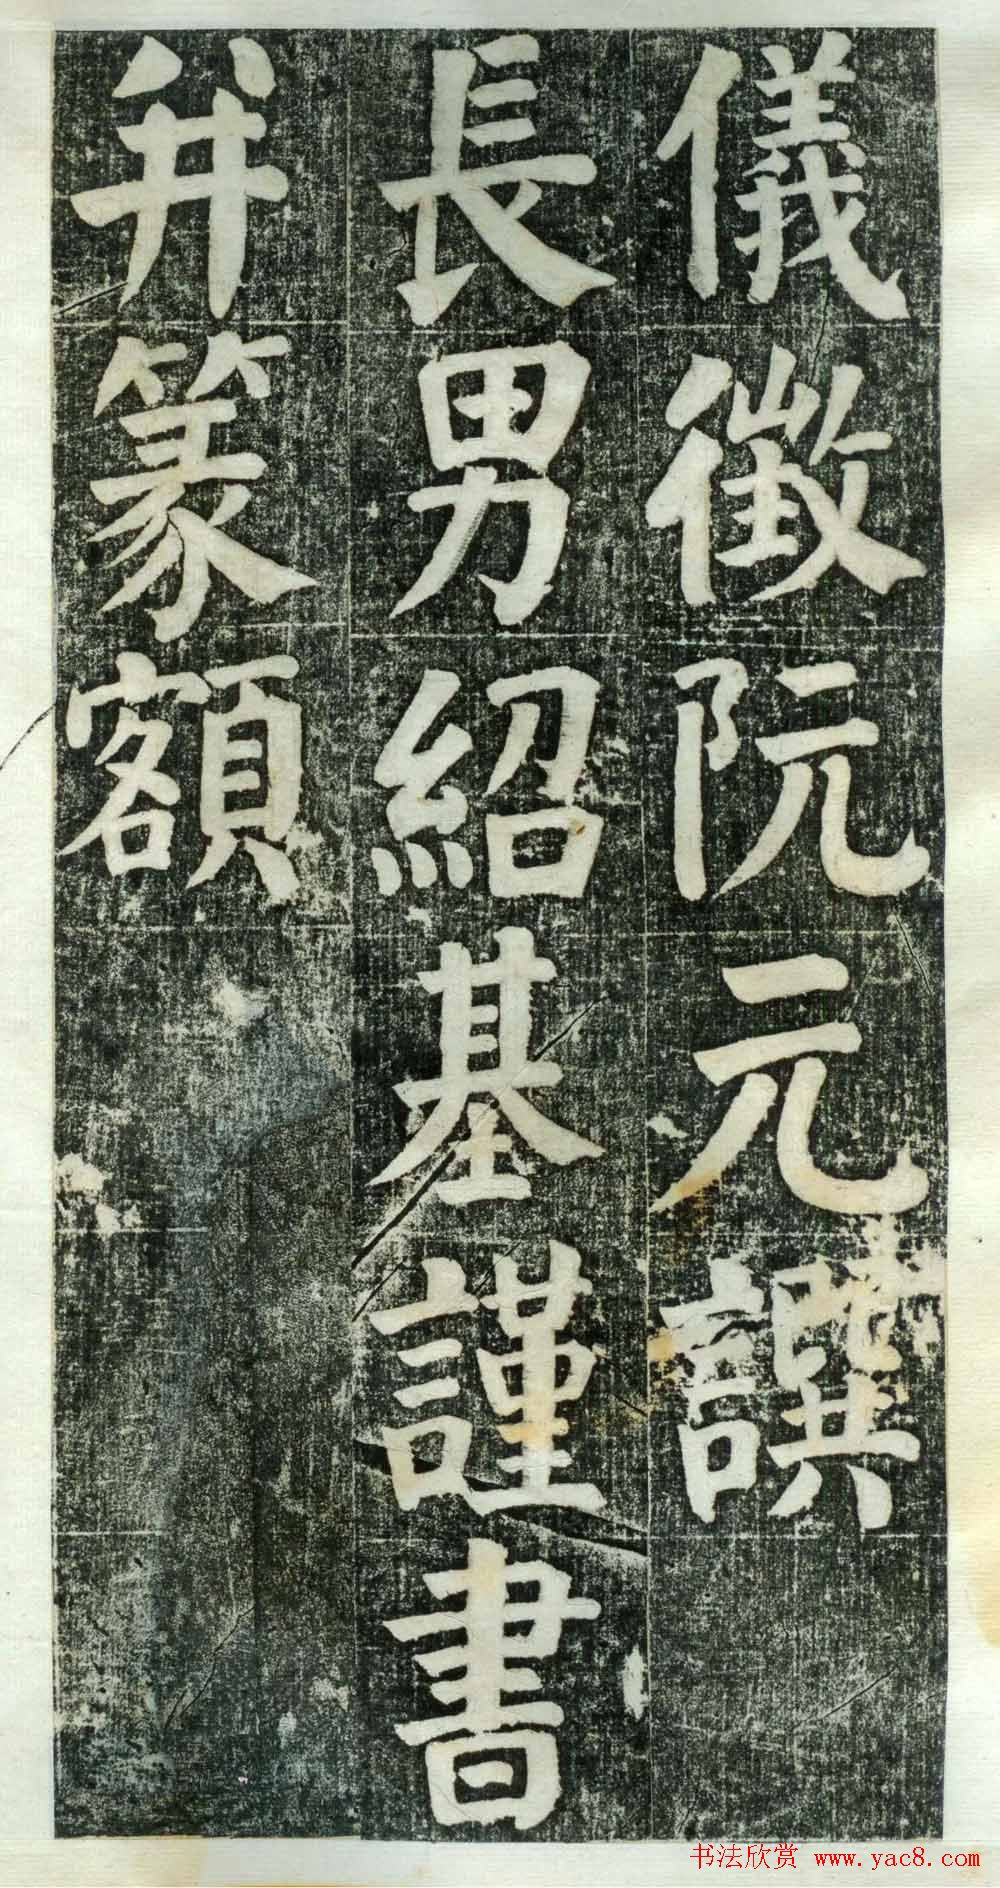 儀徵阮元譔
長男紹基謹書
并篆額
书法欣赏 www.yac8.com